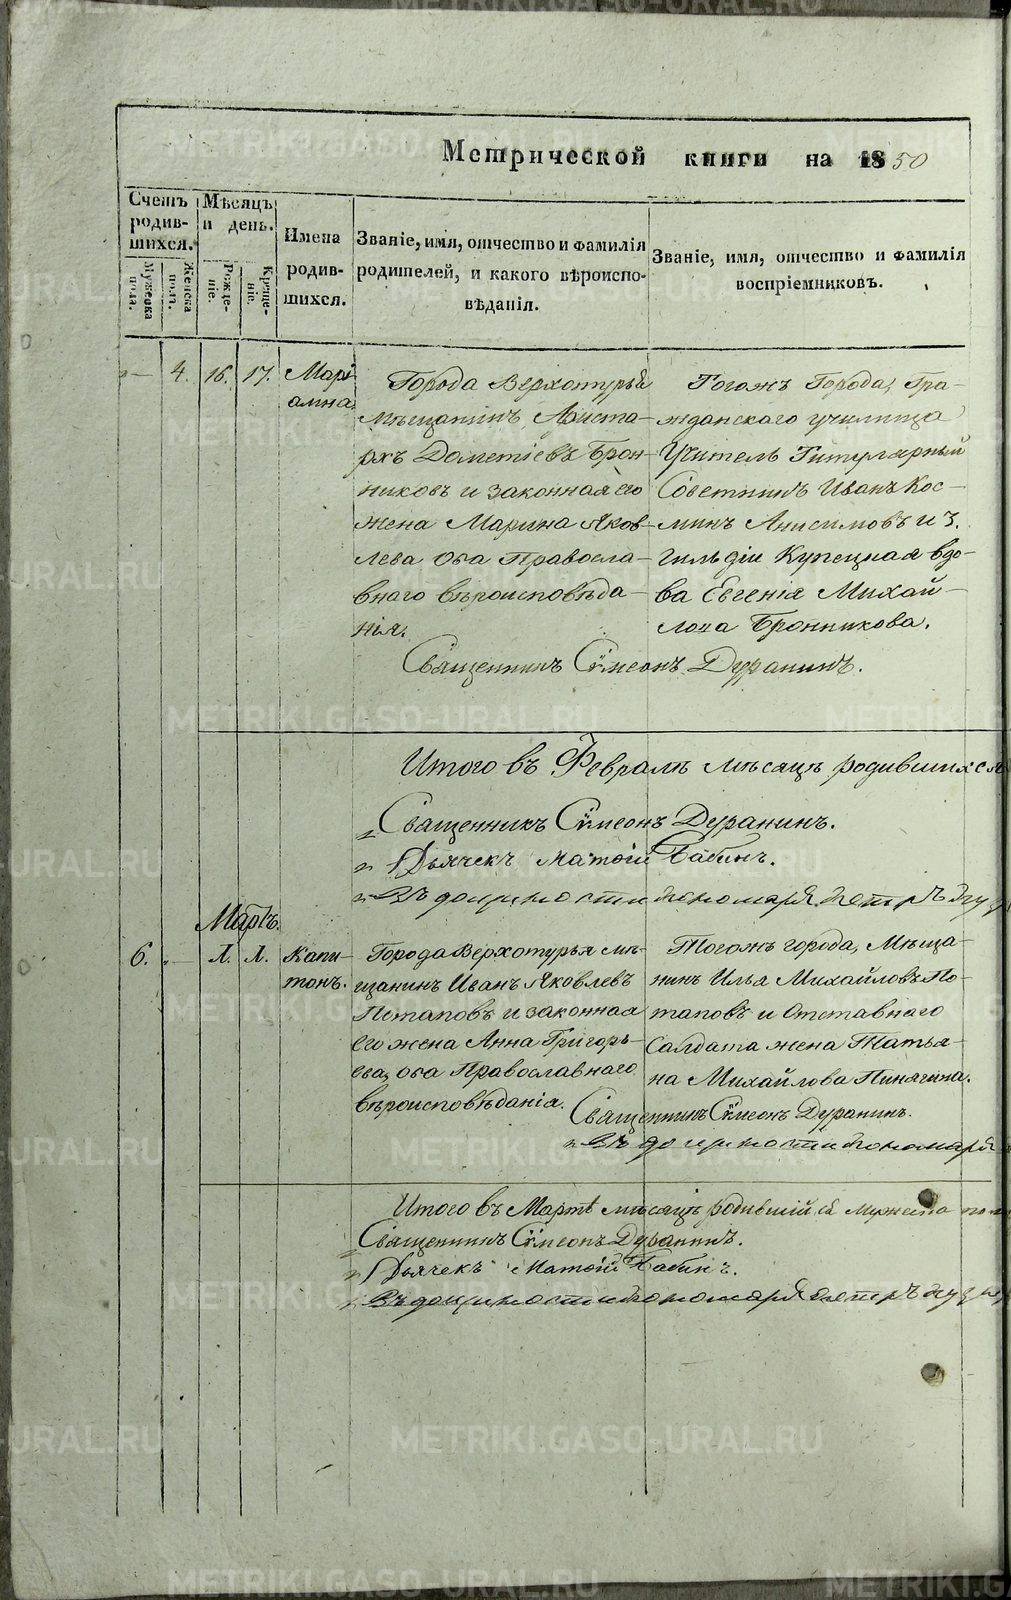 Метрической книги на 1850
Счетъ родив-шихся.
Мужеска пола.
Женска пола.
Мѣсяцъ и день.
Рожде-ніе.
Креще-ніе.
Имена родив-шихся.
Званіе, имя, отчество и фамилія родителей, и какого вѣроиспо-вѣданія.
Званіе, имя, отчество и фамилія воспріемниковъ.
4. 16. 17.
Марі-
амна.
Города Верхотурья
мѣщанинъ, Ариста-
рхъ Дометіевъ Брон-
никовъ и законная его
жена Марина Яков-
лева оба Правосла-
внаго вѣроисповѣда-
нія.
Тогожъ Города, Гра-
жданскаго училища
Учитель Титулярный
Советникъ Иванъ Кос-
минъ Анисимовъ и 3.
гильдіи Купецкая вдо-
ва Евгенія Михай-
лова Бронникова.
Священникъ Сѵмеонъ Дуранинъ.
Итого въ Февралѣ мѣсяцѣ родившихся
Священникъ Сѵмеонъ Дуранинъ.
Дьячекъ Матѳій Бабинъ.
Въ должности пономаря Петръ
Мартъ.
6. 1. 1.
Капи-
тонъ.
Города Верхотурья мѣ-
щанинъ Иванъ Яковлевъ
Потаповъ и законная
его жена Анна Григорь-
ева, оба Православнаго
вѣроисповѣданія.
Тогожъ города, Мѣща-
нинъ Илья Михайловъ По-
таповъ и Отставнаго
Солдата жена Татья-
на Михайлова Пинягина.
Священникъ Сѵмеонъ Дуранинъ.
Въ должности пономаря
Итого въ Мартѣ мѣсяцѣ родившійся мужеска
Священникъ Сѵмеонъ Дуранинъ.
Дьячекъ Матѳій Бабинъ.
Въ должности пономаря Петръ
METRIKI.GASO-URAL.RU